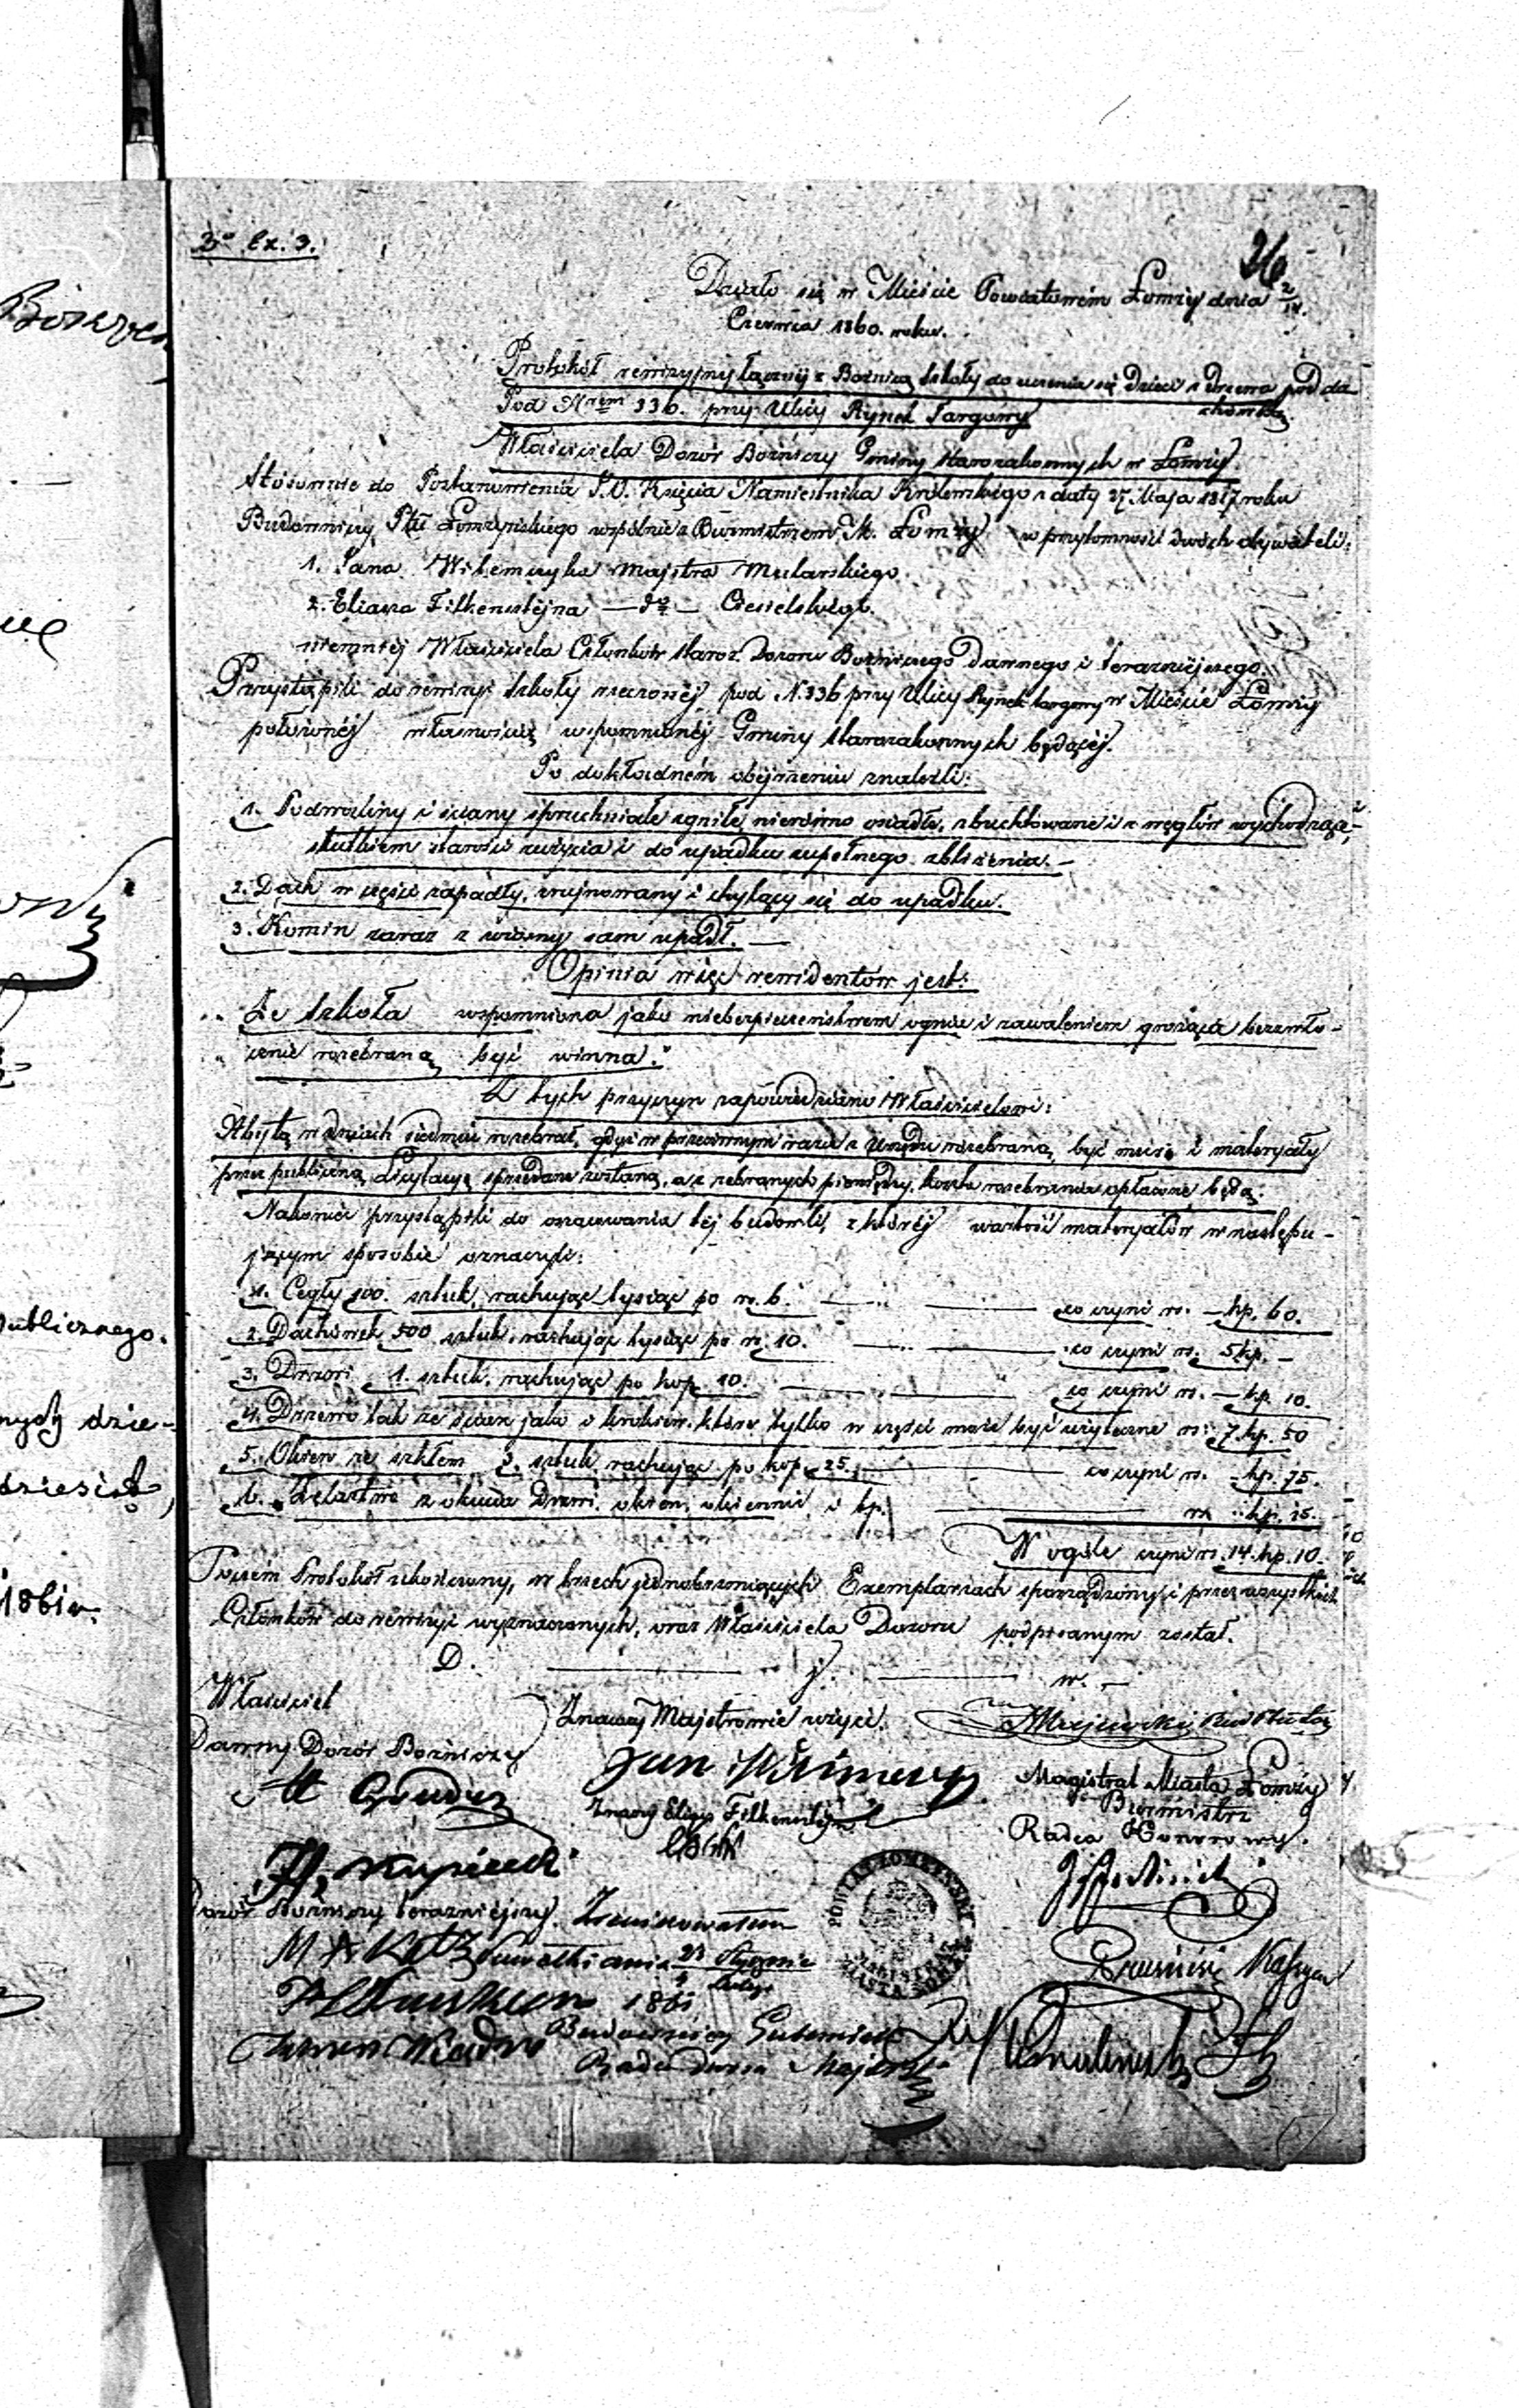 3o Ex. 3.
26
Działo się w Mieście Powiatowem Łomży dnia 2/14.
Czerwca 1860. roku.
Protokół rewizyjny łącznéj z Bożnicą szkoły do uczenia się dzieci z drzewa pod da
chówką
Pod Nrem 336. przy Ulicy Rynek Targowy
Właściciela Dozór Bóżniczy Gminy starozakonnych w Łomży.
Stósownie do Postanowienia J.O. Księcia Namiestnika Królewskiego z daty 27. Maja 1817 roku
Budowniczy Ptu Łomżyńskiego wspólnie z Burmistrzem M. Łomży w przytomności dwóch obywateli:
1. Jana majstra Mularskiego
2. Eliasza Filkensztejna — do — Ciesielskiego.
niemniéj Właściciela Członków staroz. Dozoru Bożniczego dawnego i terazniejszego.
Przystąpili do rewizyi szkoły rzeczonéj pod N. 336 przy Ulicy Rynek targowy w Mieście Łomży
położonéj własnością wspomnionéj Gminy starozakonnych będącéj.
Po dokładném obejrzeniu znaleźli:
1. Podwaliny i ściany spruchniałe zgniłe, nierówno osiadłe, i z węgłów wychodzące,
skutkiem starości zużycia i do upadku zupełnego zbliżenia. —
2. Dach w części zapadły, zrujnowany i chylący się do upadku.
3. Komin zaraz z wiosny sam upadł. —
Opinia więc rewidentów jest:
„Że szkoła wspomniona jako niebezpieczeństwem ognia i zawaleniem grożąca bezzwło-
„cznie rozebraną być winna.”
Z tych przyczyn zapowiedziano Właścicielowi:
Ażby tą w dniach siedmiu rozebrał, gdyż w przeciwnym razie z Urzędu rozebraną być musi i materyały
przez publiczną Licytacyę sprzedane zostaną, a z zebranych pieniędzy, koszta rozebrania opłacone będą.
Nakoniec przystąpili do oszacowania téj budowli, z któréj wartość materyałów w następu-
jącym sposobie oznaczyli:
1. Cegły 100. sztuk, rachując tysiąc po rs. 6. co czyni rs. — kp. 60.
2. Dachówek 500 sztuk, rachując tysiąc po rs. 10. co czyni rs. 5 kp. —
3. Drzwi 1. sztuk, rachując po kop. 10. co czyni rs. — kp. 10.
4. Drzewo tak ze ścian jako i krokiew. które tylko w części może być użyteczne rs. 7. kp. 50
5. Okien ze szkłem 3. sztuk rachując po kop. 25. co czyni rs. — kp. 75.
6. Żelastwo z okucia drzwi, okien, okiennic i kp. rs. kp. 15.
W ogóle czyni rs. 14. kp. 10.
Poczém Protokół ukończony, w trzech jednobrzmiących Exemplarzach sporządzony i przez wszystkich
Członków do rewizyi wyznaczonych, oraz Właściciela Dozoru podpisanym został.
D. — j. — w. —
Właściciel
Dawny Dozór Bożniczy
Znawcy Majstrowie użyci.
Jan
Znawcy Eliasz Filkensztejn
Magistrat Miasta Łomży
Burmistrz
Radca Honorowy.
Dozór Bóżniczy terazniejszy.
Zrewidowałem
M A Katz
Suwałki dnia 23 Stycznia
4 Lutego
1861
Budowniczy Gubernialny
Radca Dworu Majewski
POWIAT ŁOMŻYŃSKI
MAGISTRAT MIASTA ŁOMŻY
publicznego.
nych dzie-
dziesiąt,
1861 r.